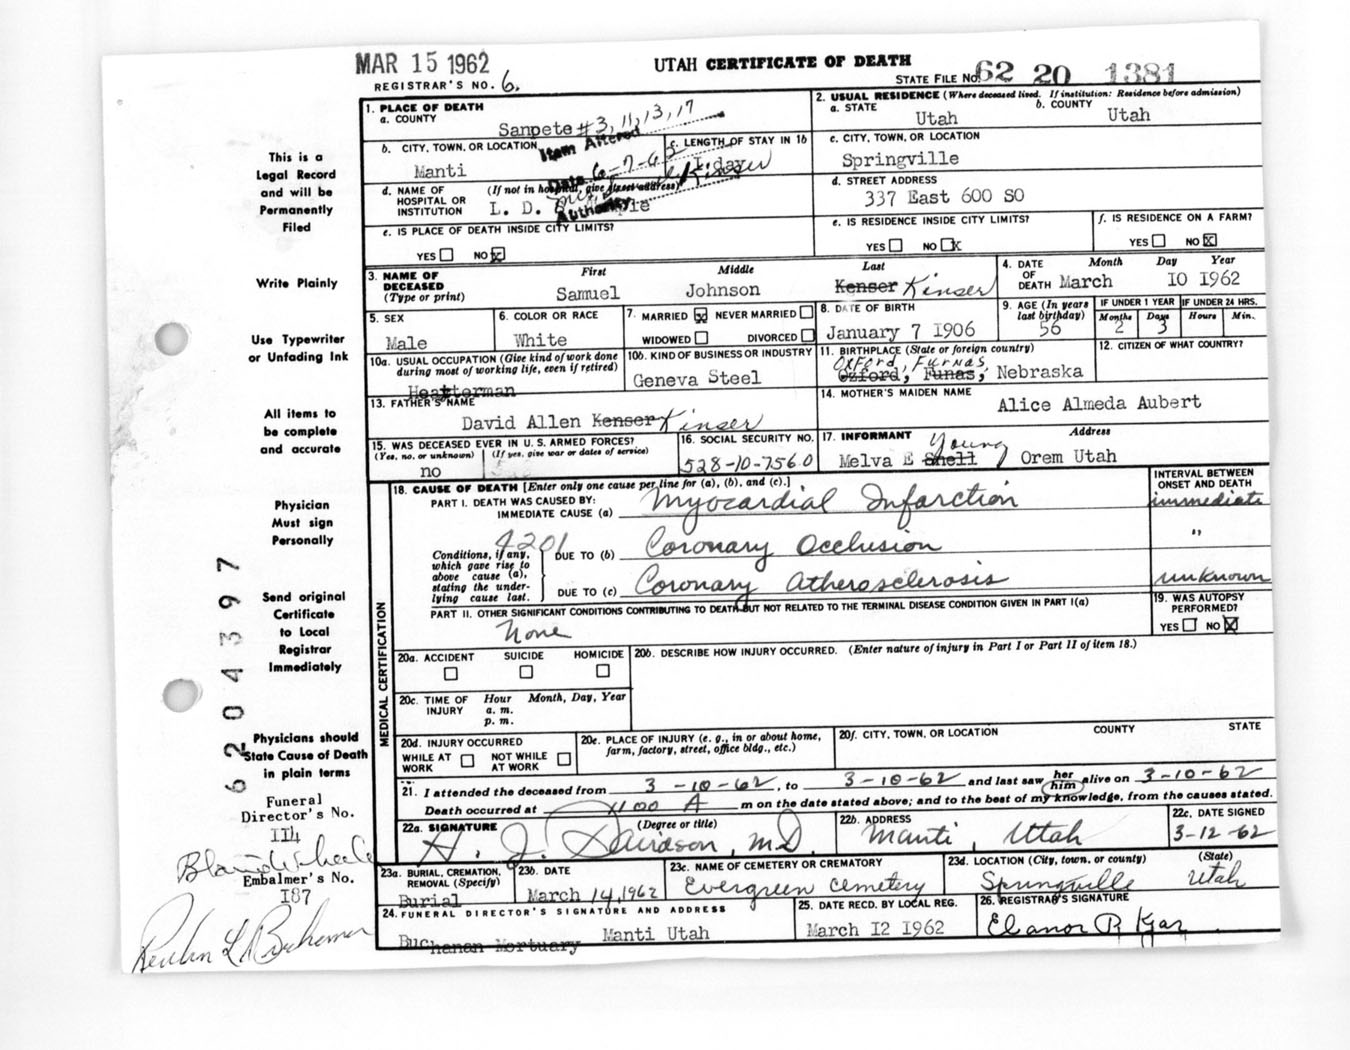 MAR 15 1962
UTAH CERTIFICATE OF DEATH
REGISTRAR'S NO. 6.
STATE FILE NO. 62 20 1381
This is a
Legal Record
and will be
Permanently
Filed
Write Plainly
Use Typewriter
or Unfading Ink
All items to
be complete
and accurate
Physician
Must sign
Personally
Send original
Certificate
to Local
Registrar
Immediately
Physicians should
State Cause of Death
in plain terms
Funeral
Director's No.
114
Embalmer's No.
187
6204397
1. PLACE OF DEATH
a. COUNTY
Sanpete #3, 11, 13, 17
Item Altered
Date 6-7-62
Authority
2. USUAL RESIDENCE (Where deceased lived. If institution: Residence before admission)
a. STATE
Utah
b. COUNTY
Utah
b. CITY, TOWN, OR LOCATION
Manti
c. LENGTH OF STAY IN 1b
1 day
c. CITY, TOWN, OR LOCATION
Springville
d. NAME OF HOSPITAL OR INSTITUTION
(If not in hospital, give street address)
L. D.
d. STREET ADDRESS
337 East 600 SO
e. IS PLACE OF DEATH INSIDE CITY LIMITS?
YES NO X
e. IS RESIDENCE INSIDE CITY LIMITS?
YES NO X
f. IS RESIDENCE ON A FARM?
YES NO X
3. NAME OF DECEASED
(Type or print)
First Middle Last
Samuel Johnson Kenser Kinser
4. DATE OF DEATH
Month Day Year
March 10 1962
5. SEX
Male
6. COLOR OR RACE
White
7. MARRIED X NEVER MARRIED
WIDOWED DIVORCED
8. DATE OF BIRTH
January 7 1906
9. AGE (In years last birthday)
56
IF UNDER 1 YEAR
Months Days
2 3
IF UNDER 24 HRS.
Hours Min.
10a. USUAL OCCUPATION (Give kind of work done during most of working life, even if retired)
Heatterman
10b. KIND OF BUSINESS OR INDUSTRY
Geneva Steel
11. BIRTHPLACE (State or foreign country)
Oxford, Furnas,
Ozford, Funas, Nebraska
12. CITIZEN OF WHAT COUNTRY?
13. FATHER'S NAME
David Allen Kenser Kinser
14. MOTHER'S MAIDEN NAME
Alice Almeda Aubert
15. WAS DECEASED EVER IN U. S. ARMED FORCES?
(Yes, no, or unknown) (If yes, give war or dates of service)
no
16. SOCIAL SECURITY NO.
528-10-7560
17. INFORMANT Address
Young
Melva E Snell Orem Utah
MEDICAL CERTIFICATION
18. CAUSE OF DEATH [Enter only one cause per line for (a), (b), and (c).]
INTERVAL BETWEEN ONSET AND DEATH
PART I. DEATH WAS CAUSED BY:
IMMEDIATE CAUSE (a) Myocardial Infarction immediate
4201
Conditions, if any, which gave rise to above cause (a), stating the underlying cause last.
DUE TO (b) Coronary Occlusion "
DUE TO (c) Coronary Atherosclerosis unknown
PART II. OTHER SIGNIFICANT CONDITIONS CONTRIBUTING TO DEATH BUT NOT RELATED TO THE TERMINAL DISEASE CONDITION GIVEN IN PART I(a)
None
19. WAS AUTOPSY PERFORMED?
YES NO X
20a. ACCIDENT SUICIDE HOMICIDE
20b. DESCRIBE HOW INJURY OCCURRED. (Enter nature of injury in Part I or Part II of item 18.)
20c. TIME OF INJURY
Hour Month, Day, Year
a. m.
p. m.
20d. INJURY OCCURRED
WHILE AT WORK NOT WHILE AT WORK
20e. PLACE OF INJURY (e. g., in or about home, farm, factory, street, office bldg., etc.)
20f. CITY, TOWN, OR LOCATION COUNTY STATE
21. I attended the deceased from 3-10-62, to 3-10-62 and last saw her him alive on 3-10-62
Death occurred at 1100 A m on the date stated above; and to the best of my knowledge, from the causes stated.
22a. SIGNATURE (Degree or title)
H. J. Davidson, M.D.
22b. ADDRESS
Manti, Utah
22c. DATE SIGNED
3-12-62
23a. BURIAL, CREMATION, REMOVAL (Specify)
Burial
23b. DATE
March 14, 1962
23c. NAME OF CEMETERY OR CREMATORY
Evergreen Cemetery
23d. LOCATION (City, town, or county) (State)
Springville Utah
24. FUNERAL DIRECTOR'S SIGNATURE AND ADDRESS
Buchanan Mortuary Manti Utah
25. DATE RECD. BY LOCAL REG.
March 12 1962
26. REGISTRAR'S SIGNATURE
Elanor P Kjar